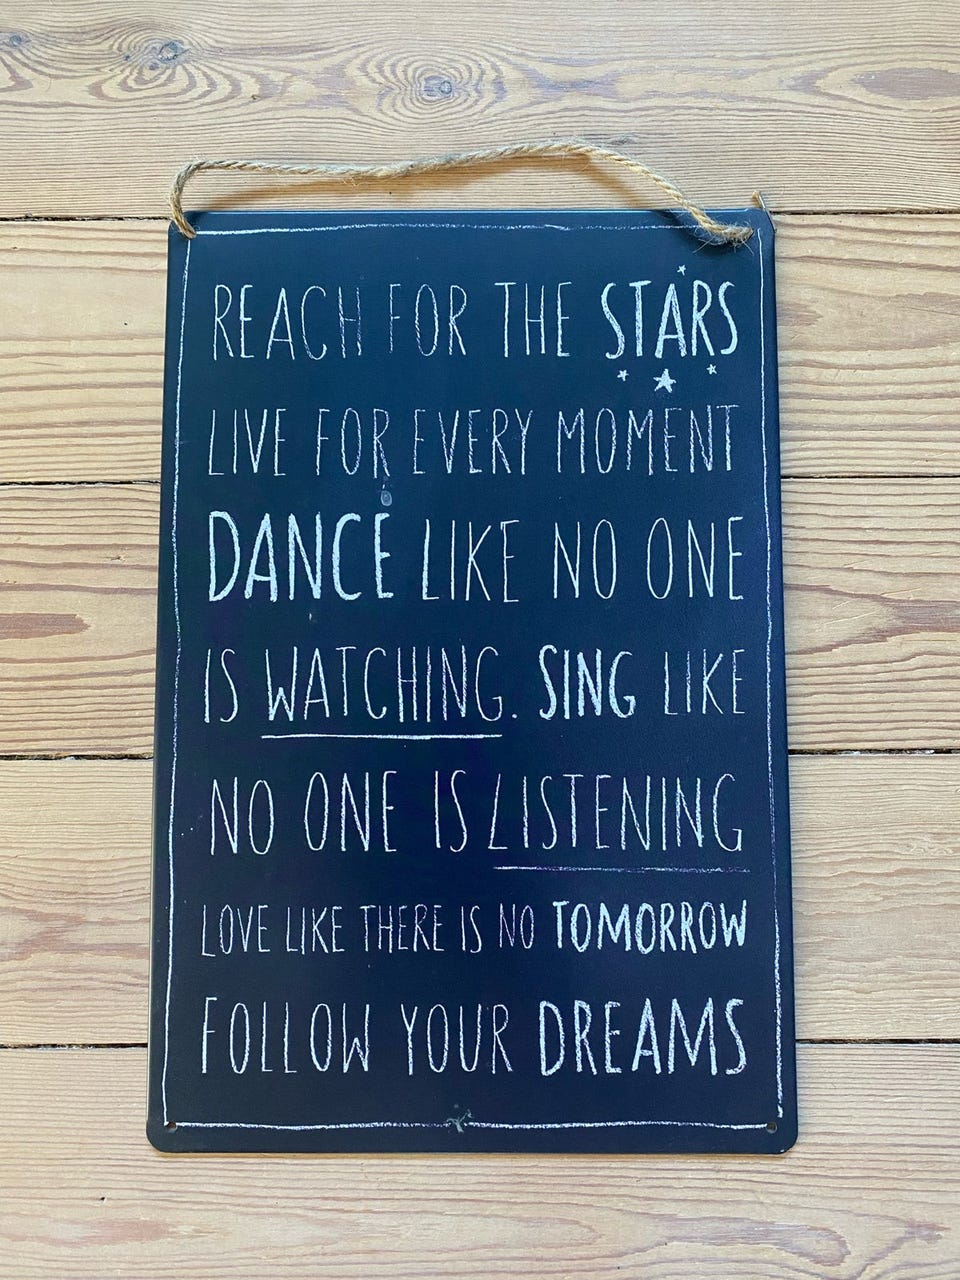 REACH FOR THE STARS
LIVE FOR EVERY MOMENT
DANCE LIKE NO ONE
IS WATCHING. SING LIKE
NO ONE IS LISTENING
LOVE LIKE THERE IS NO TOMORROW
FOLLOW YOUR DREAMS